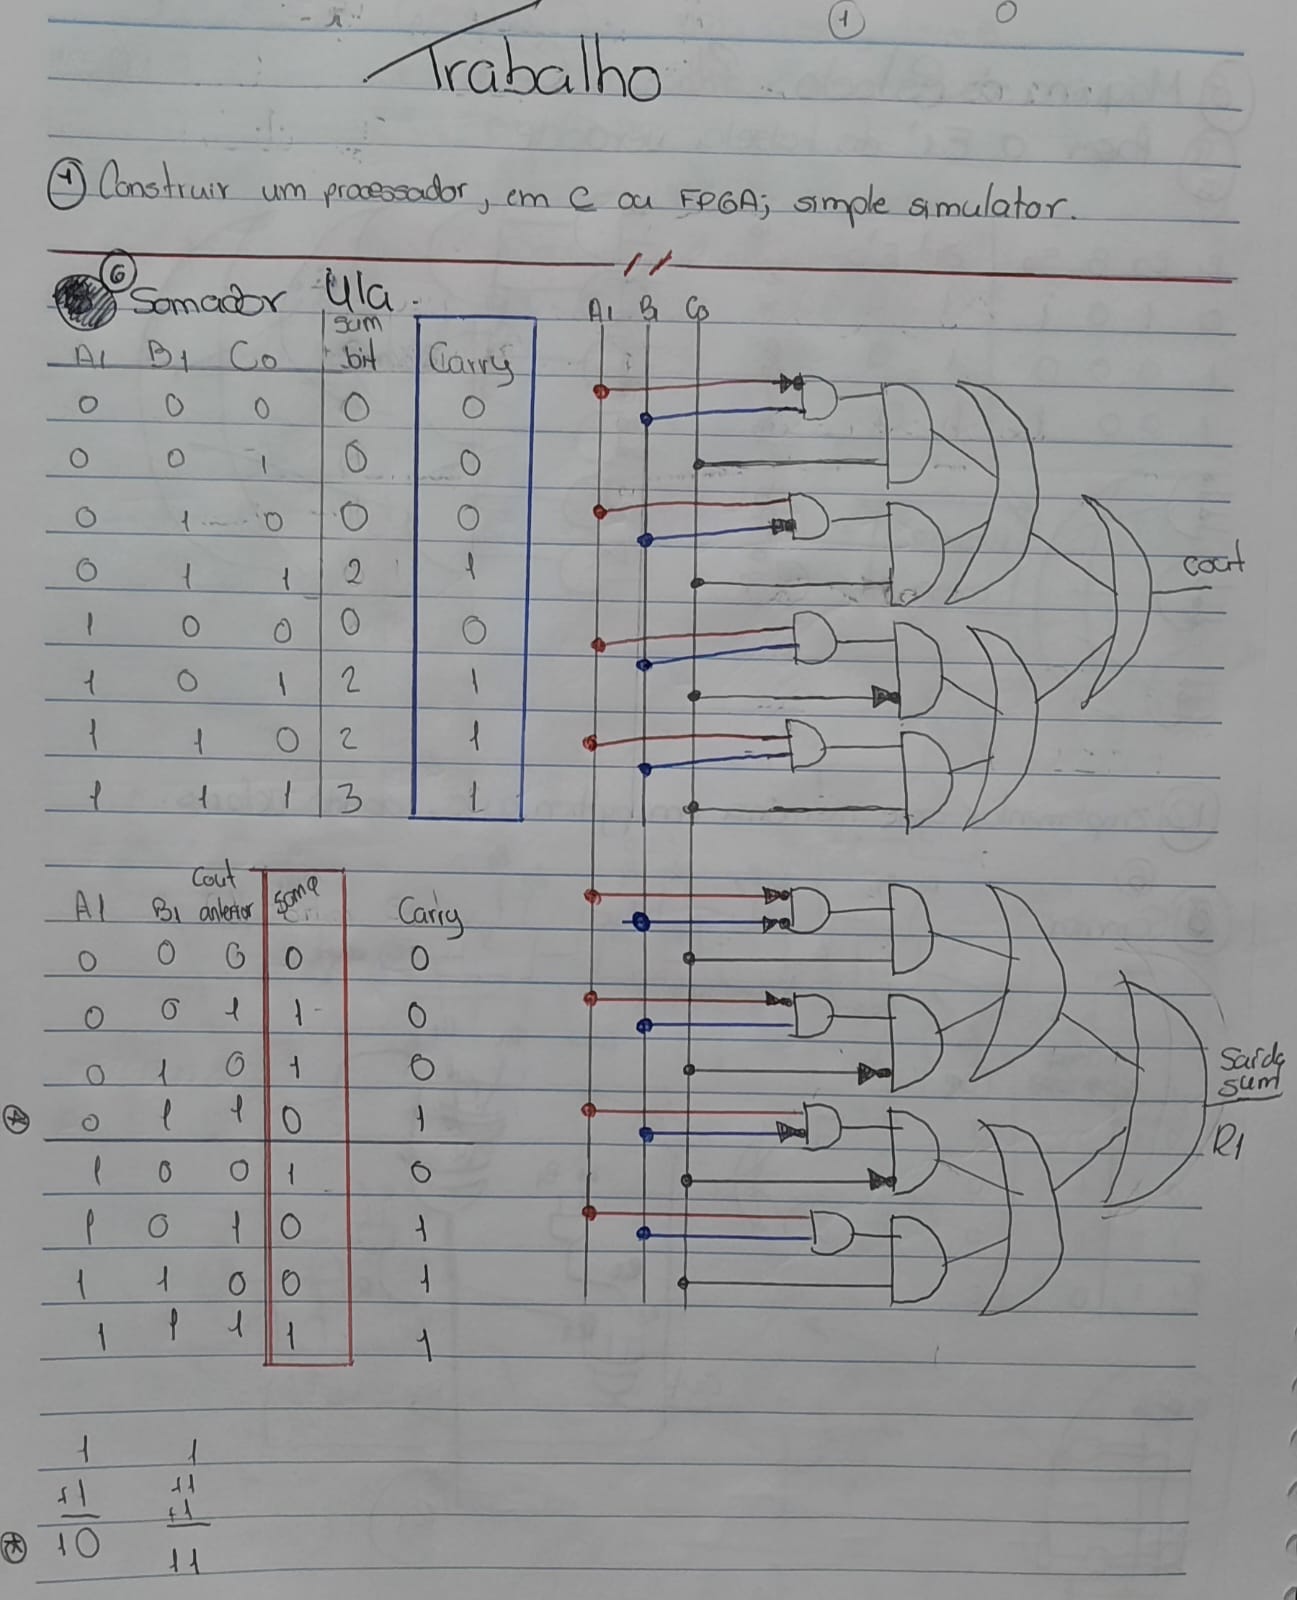 1 0
Trabalho
1 Construir um processador, em C ou FPGA; simple simulator.
6 Somador Ula.
A1 B1 C0 sum bit Carry
0 0 0 0 0
0 0 1 0 0
0 1 0 0 0
0 1 1 2 1
1 0 0 0 0
1 0 1 2 1
1 1 0 2 1
1 1 1 3 1
A1 B1 C0
cout
A1 B1 Cout anterior Soma Carry
0 0 0 0 0
0 0 1 1 0
0 1 0 1 0
0 1 1 0 1
1 0 0 1 0
1 0 1 0 1
1 1 0 0 1
1 1 1 1 1
Saída
sum
R1
1 1
+1 11
10 +1
11